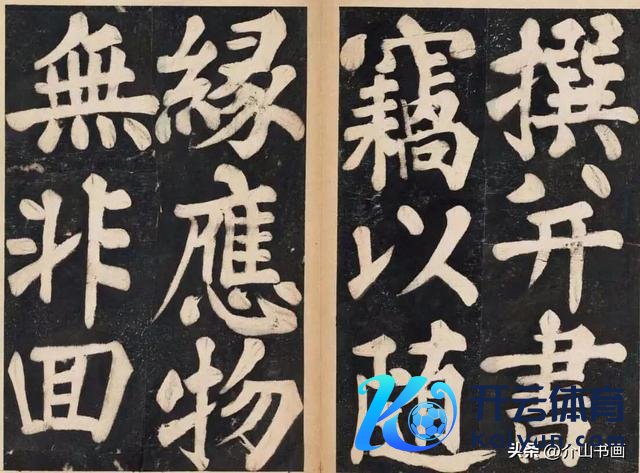 撰并書
竊以随
縁應物
無非囬
开云体育
Kaiyun.com
头条 @介山书画